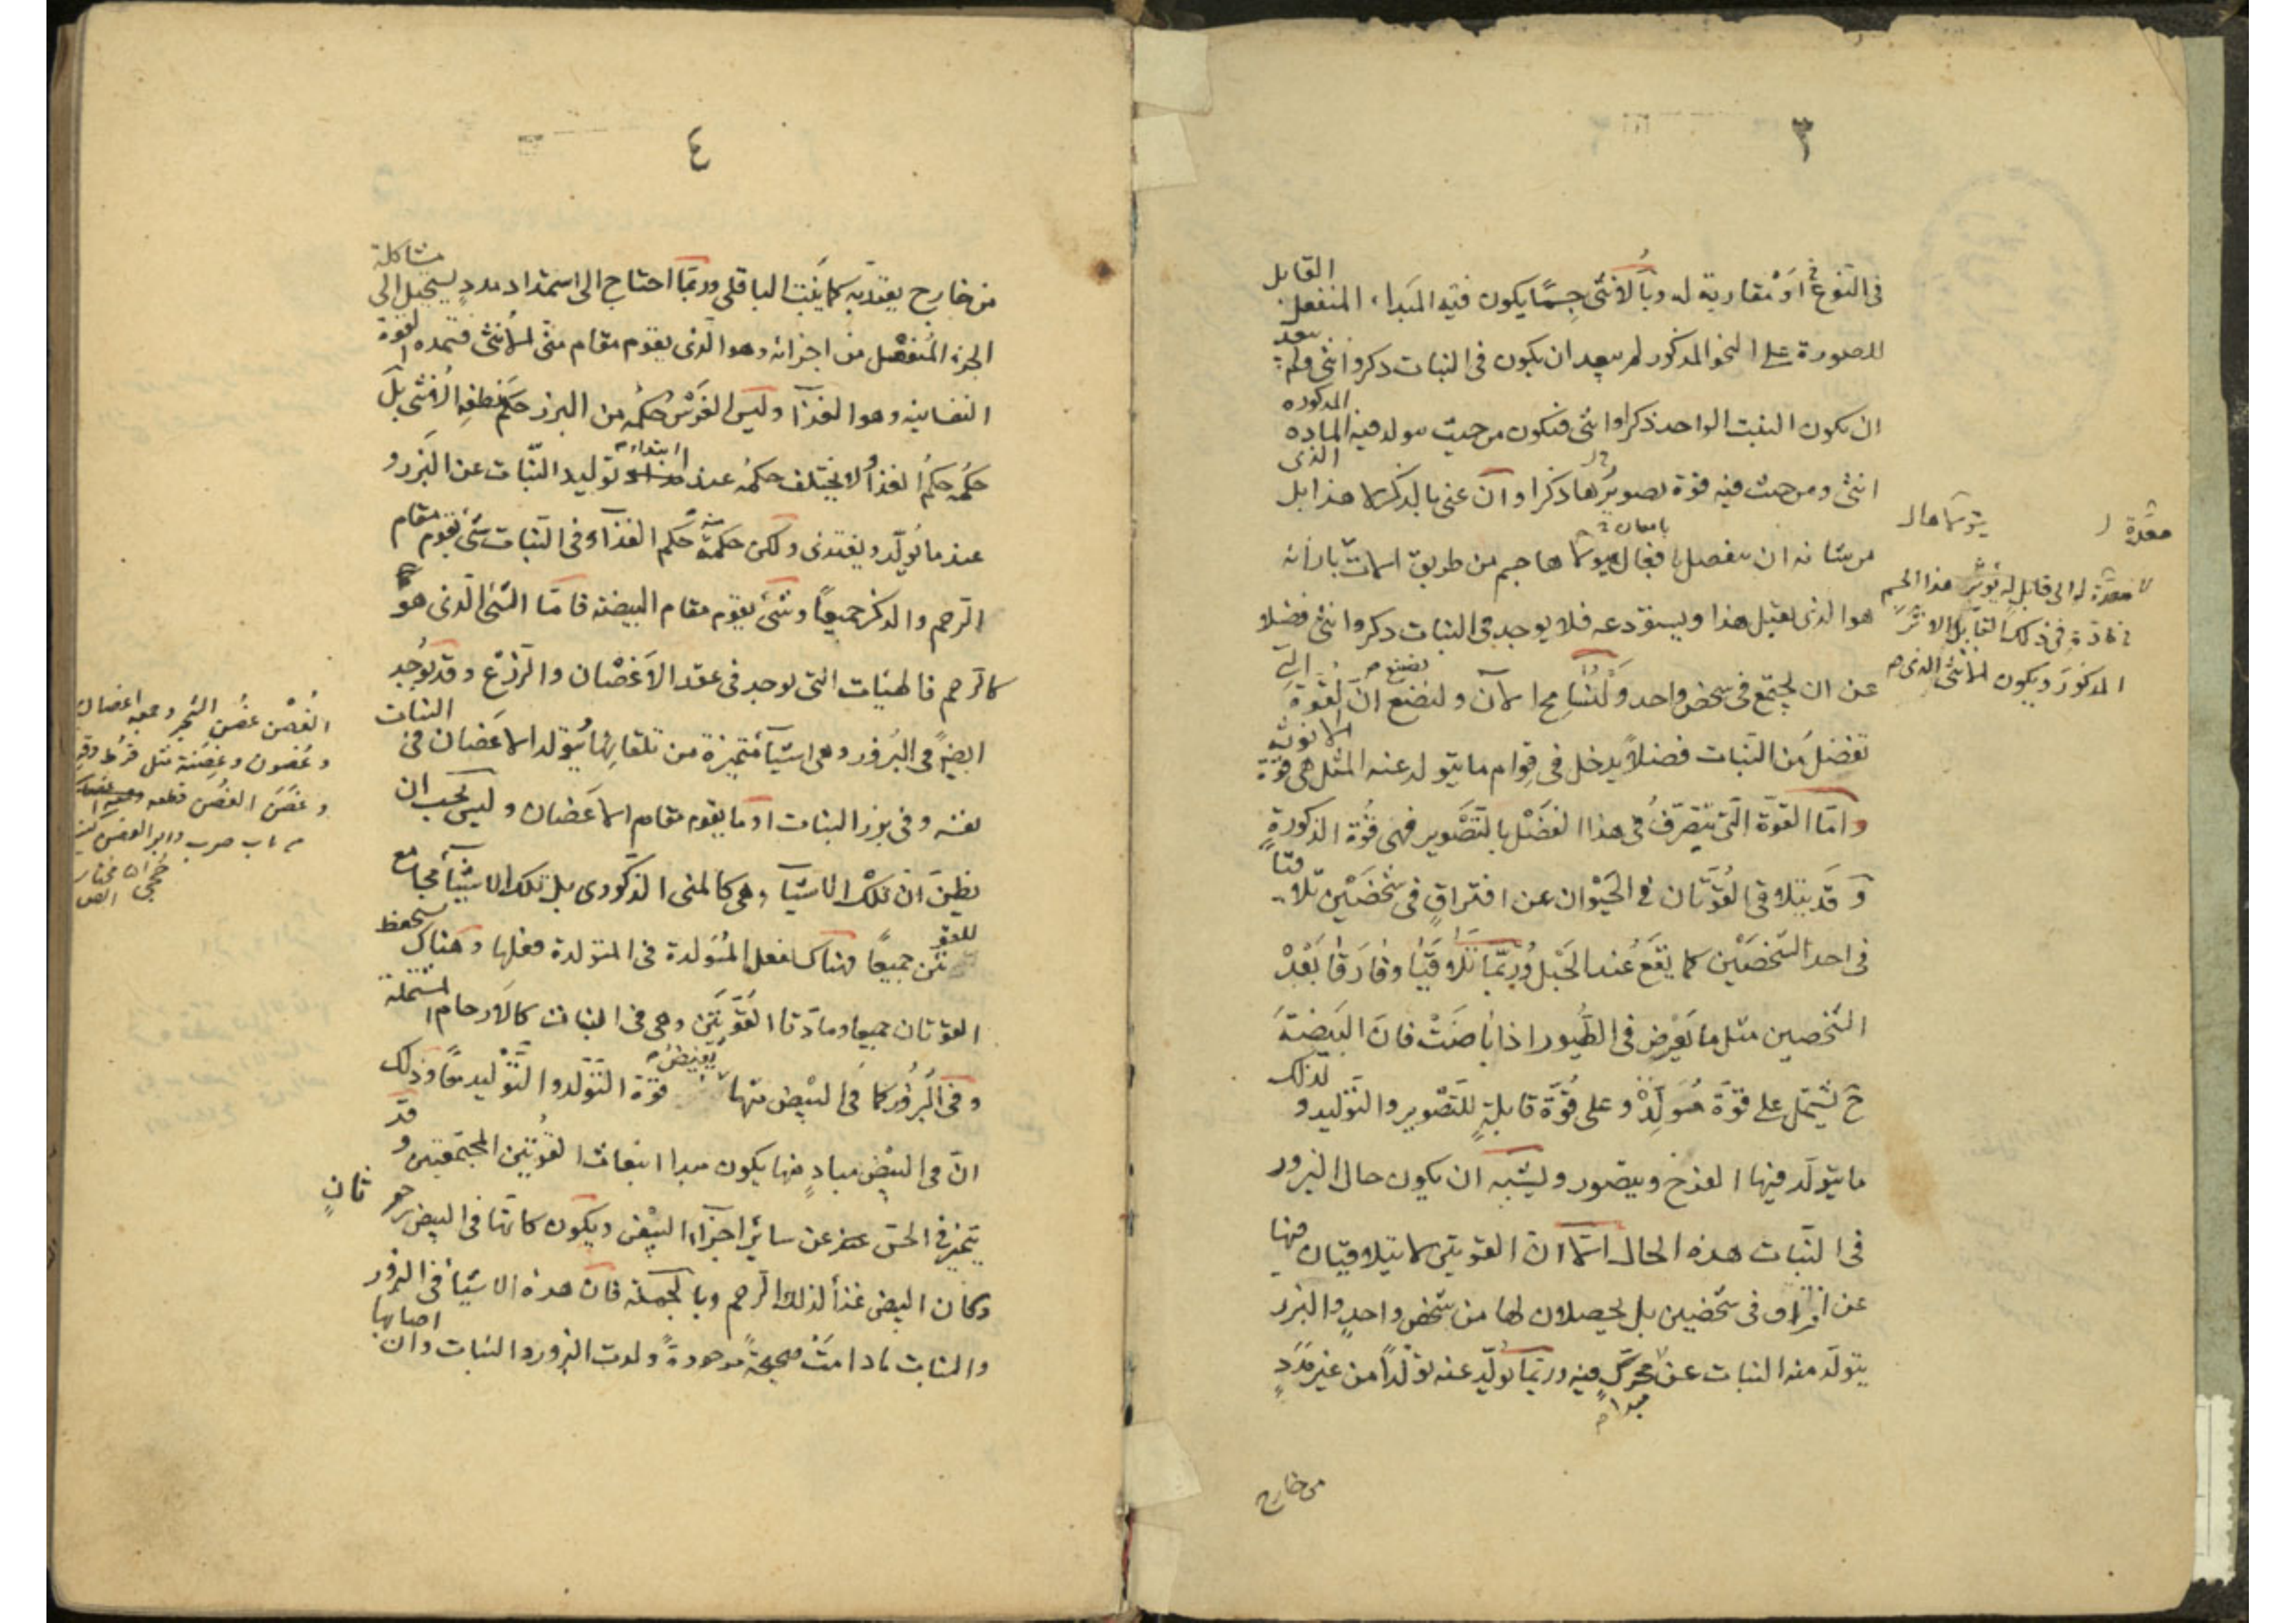 ٣
في النوع أو مقاربة له وبالانثى جسما يكون فيه المبدأ المنفعل القابل
للصورة على النحو المذكور لم يبعد ان يكون في النبات ذكر وانثى ولم يبعد
ان يكون النبت الواحد ذكرا وانثى فيكون من حيث يتولد فيه المادة المذكورة
انثى ومن حيث فيه قوة تصويرها ذكرا وان عنى بالذكر لا هذا بل الذي
من شانه ان ينفصل
هو الذي يقبل هذا ويستودعه فلا يوجد في النبات ذكر وانثى فضلا
عن ان يجتمع في شخص واحد ولنسامح الآن ولنضع ان القوة التي
تفضل من النبات فضلا يدخل في قوام ما يتولد عنه المثل هي قوة الانوثية
واما القوة التي تتصرف في هذا الفضل بالتصوير فهي قوة الذكورة
وقد يتلاقى القوتان في الحيوان عن افتراق في شخصين تلاقيا
في احد الشخصين كما يقع عند الحبل وربما تلاقيا وفارقا بعد
الشخصين مثل ما يعرض في الطيور اذا باضت فان البيضة
ح تشتمل على قوة مولدة وعلى قوة قابلة للتصوير والتوليد ولذلك
ما يتولد فيها الفرخ ويتصور ويشبه ان يكون حال البزور
في النبات هذه الحال الا ان القوتين لا يتلاقيان فيها
عن افتراق في شخصين بل يحصلان لها من شخص واحد والبزر
يتولد منه النبات عن محرك فيه وربما تولد عنه تولدا من غير مدد
مبدا
من خارج
معدة له الى قابل له يؤثر هذا الجسم
في ذلك القابل الاثر
المذكور ويكون الانثى الذي
٤
من خارج يعتد به كما ينبت الباقلى وربما احتاج الى استمداد مدد ليستحيل الى مشاكلة
الجزء المنفصل من اجزائه وهو الذي يقوم مقام منى الانثى فتمده القوة
النفسانية وهو الغذاء وليس الغرس حكمه من البزر حكم نطفة الانثى بل
حكمه حكم الغذاء ولا يختلف حكمه عند ابتداء توليد النبات عن البزر و
عند ما يولد ويغتذي ولكن حكمه ثمة حكم الغذاء وفي النبات شئ يقوم مقام
الرحم والذكر جميعا وشئ يقوم مقام البيضة فاما الشئ الذي هو
كالرحم فالهيئات التي توجد في عقد الاغصان والزرع وقد يوجد
ايضا في البزور وهي اشياء متميزة من تلقائها يتولد الاغصان في النبات
نفسه وفي بزر النبات او ما يقوم مقام الاغصان وليس يجب ان
يظن ان تلك الاشياء هي كالمنى الذكوري بل تلك الاشياء مجامع
للقوتين جميعا فهناك تفعل المولدة في المتولدة فعلها وهناك تنحفظ
القوتان جميعا ومادتا القوتين وهي في النبات كالارحام المشتملة
وفي البزور كما في البيض منها قوة التولد والتوليد معا وذلك
ان في البيض مباد منها يكون مبدا انبعاث القوتين المجتمعتين وقد
يتميز في الحس عن سائر اجزاء البيض ويكون كانها في البيض رحم ثان
وكان البيض غذاء لذلك الرحم وبالجملة فان هذه الاشياء في البزور
والمنابت ما دامت صحيحة موجودة ولدت البزور والنبات وان اصابها
الغصن غصن الشجر وجمعه اغصان
وغصون وغصنة مثل قرط وقرطة
وغصن الغصن قطعه